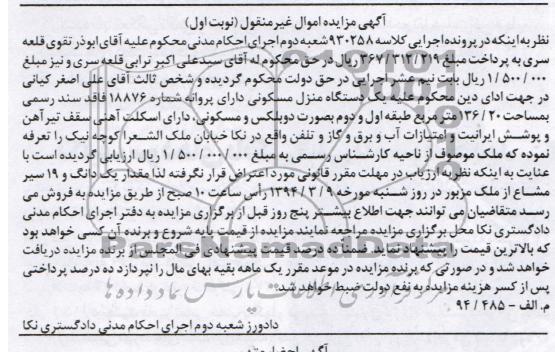 آگهی مزایده اموال غیرمنقول (نوبت اول)
نظر به اینکه در پرونده اجرایی کلاسه ۹۳۰۲۵۸ شعبه دوم اجرای احکام مدنی محکوم علیه آقای ابوذر تقوی قلعه
سری به پرداخت مبلغ ۳۶۷/۳۱۲/۲۱۹ ریال در حق محکوم له آقای سیدعلی اکبر ترابی قلعه سری و نیز مبلغ
۱/۵۰۰/۰۰۰ ریال بابت نیم عشر اجرایی در حق دولت محکوم گردیده و شخص ثالث آقای علی اصغر کیانی
در جهت ادای دین محکوم علیه یک دستگاه منزل مسکونی دارای پروانه شماره ۱۸۸۷۶ فاقد سند رسمی
بمساحت ۱۳۶/۲۰ متر مربع طبقه اول و دوم بصورت دوبلکس و مسکونی، دارای اسکلت آهنی سقف تیرآهن
و پوشش ایرانیت و امتیازات آب و برق و گاز و تلفن واقع در نکا خیابان ملک الشعرا کوچه نیک را تعرفه
نموده که ملک موصوف از ناحیه کارشناس رسمی به مبلغ ۱/۵۰۰/۰۰۰/۰۰۰ ریال ارزیابی گردیده است با
عنایت به اینکه نظریه ارزیاب در مهلت مقرر قانونی مورد اعتراض قرار نگرفته لذا مقدار یک دانگ و ۱۹ سیر
مشاع از ملک مزبور در روز شنبه مورخه ۱۳۹۴/۳/۹ رأس ساعت ۱۰ صبح از طریق مزایده به فروش می
رسد متقاضیان می توانند جهت اطلاع بیشتر پنج روز قبل از برگزاری مزایده به دفتر اجرای احکام مدنی
دادگستری نکا محل برگزاری مزایده مراجعه نمایند مزایده از قیمت پایه شروع و برنده آن کسی خواهد بود
که بالاترین قیمت را پیشنهاد نماید. ضمنا ده درصد قیمت پیشنهادی فی المجلس از برنده مزایده دریافت
خواهد شد و در صورتی که برنده مزایده در موعد مقرر یک ماهه بقیه بهای مال را نپردازد ده درصد پرداختی
پس از کسر هزینه مزایده به نفع دولت ضبط خواهد شد.
م. الف - ۹۴/۴۸۵
دادورز شعبه دوم اجرای احکام مدنی دادگستری نکا